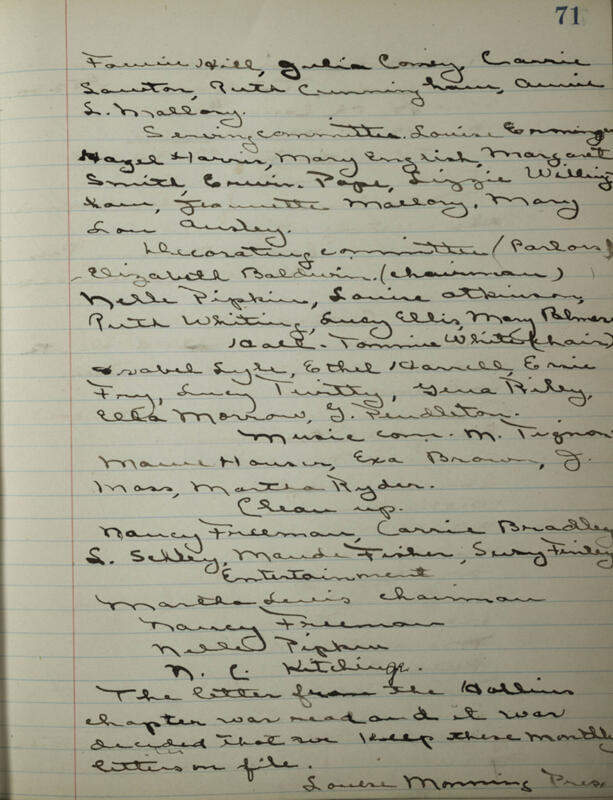 71
Fannie Hill, Julia Comey, Carrie
Lawton, Ruth Cunningham, Annie
L. Mallory.
Serving committee. Louise
Hazel Harris, Mary English, Margaret
Smith, Erwin Pope, Lizzie Willing
ham, Jeannette Mallory, Mary
Lou Ansley.
Decorating committee (Parlors)
Elizabeth Baldwin (chairman)
Nelle Pipkin, Louise Atkinson,
Ruth Whiting, Lucy Ellis, Mary Palmer
Hall - Tommie White (chair)
Isabel Lyle, Ethel Harrell, Ernie
Fry, Lucy Twitty, Gena Riley,
Ella Morrow, G. Pendleton.
Music com. M. Tignor
Houser, Exa Brown, J.
Mass, Martha Ryder.
Clean up.
Nancy Freeman, Carrie Bradley
L. Schley, Maude Fisher, Susy Finley
Entertainment
Martha Lewis chairman
Nancy Freeman
Nelle Pipkin
N. C. Kitchings.
The letter from the Hollins
chapter was read and it was
decided that we keep these monthly
letters on file.
Louise Monning Pres.